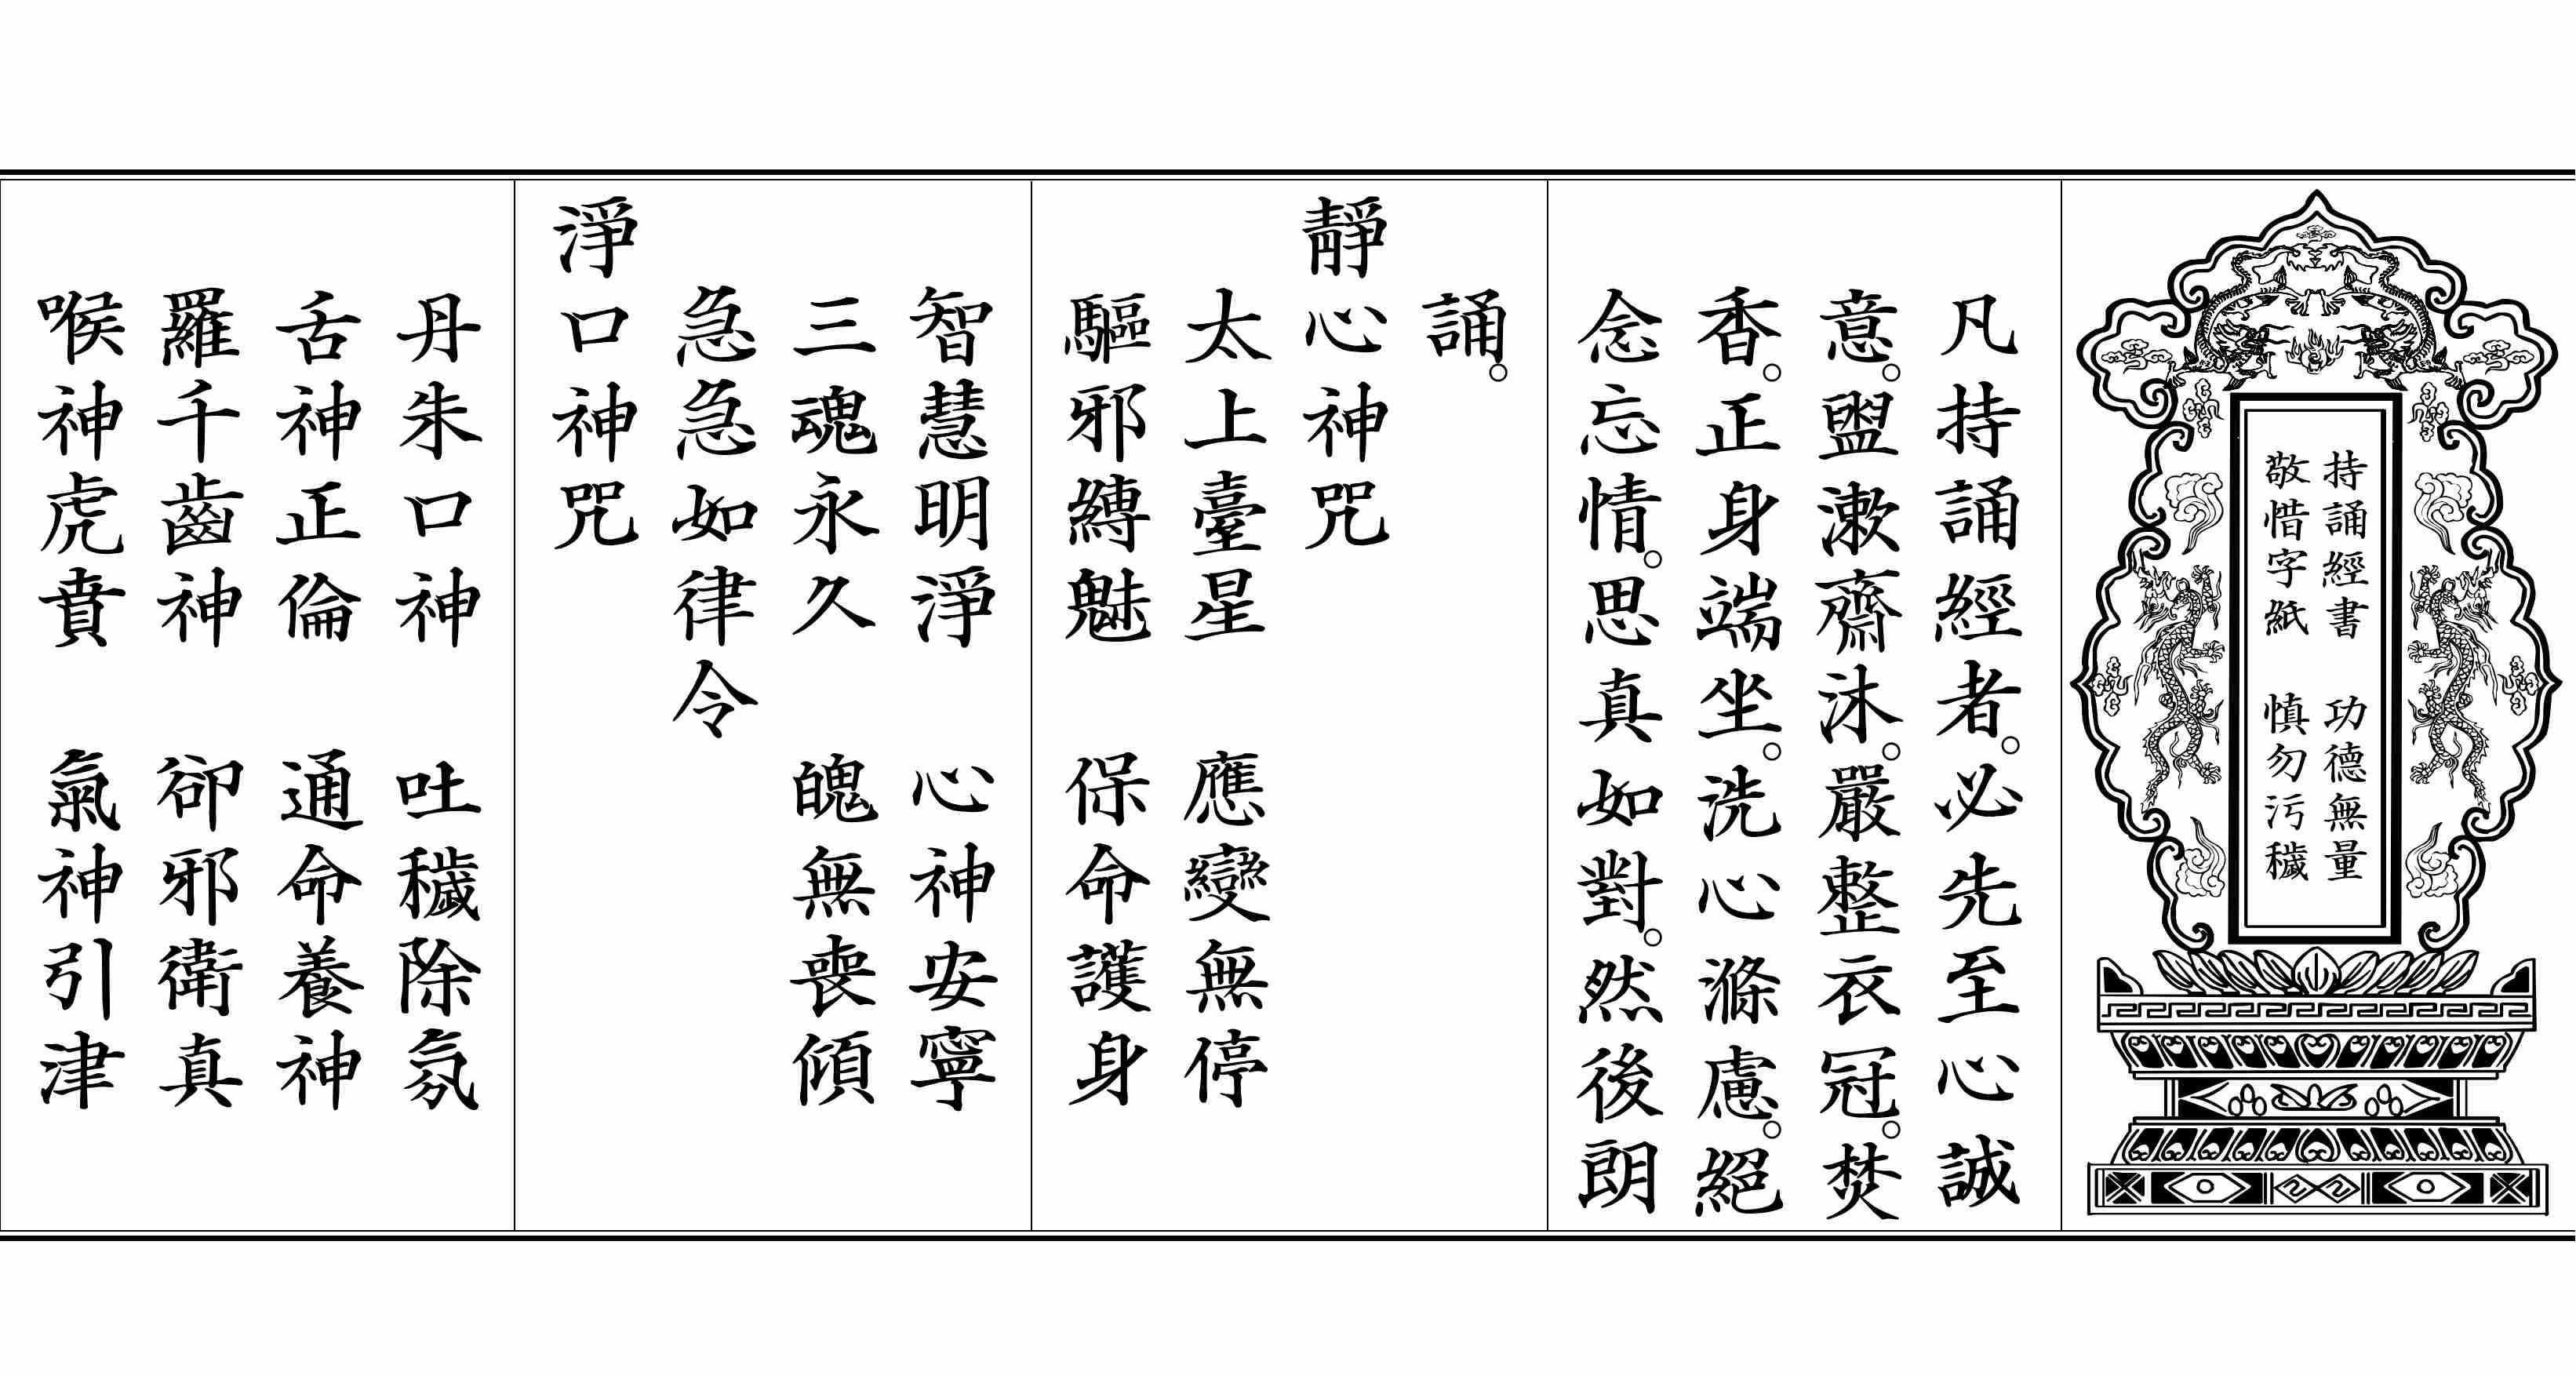 持誦經書　功德無量
敬惜字紙　慎勿污穢
凡持誦經者。必先至心誠
意。盥漱齋沐。嚴整衣冠。焚
香。正身端坐。洗心滌慮。絕
念忘情。思真如對。然後朗
誦。
靜心神咒
太上臺星　應變無停
驅邪縛魅　保命護身
智慧明淨　心神安寧
三魂永久　魄無喪傾
急急如律令
淨口神咒
丹朱口神　吐穢除氛
舌神正倫　通命養神
羅千齒神　卻邪衛真
喉神虎賁　氣神引津